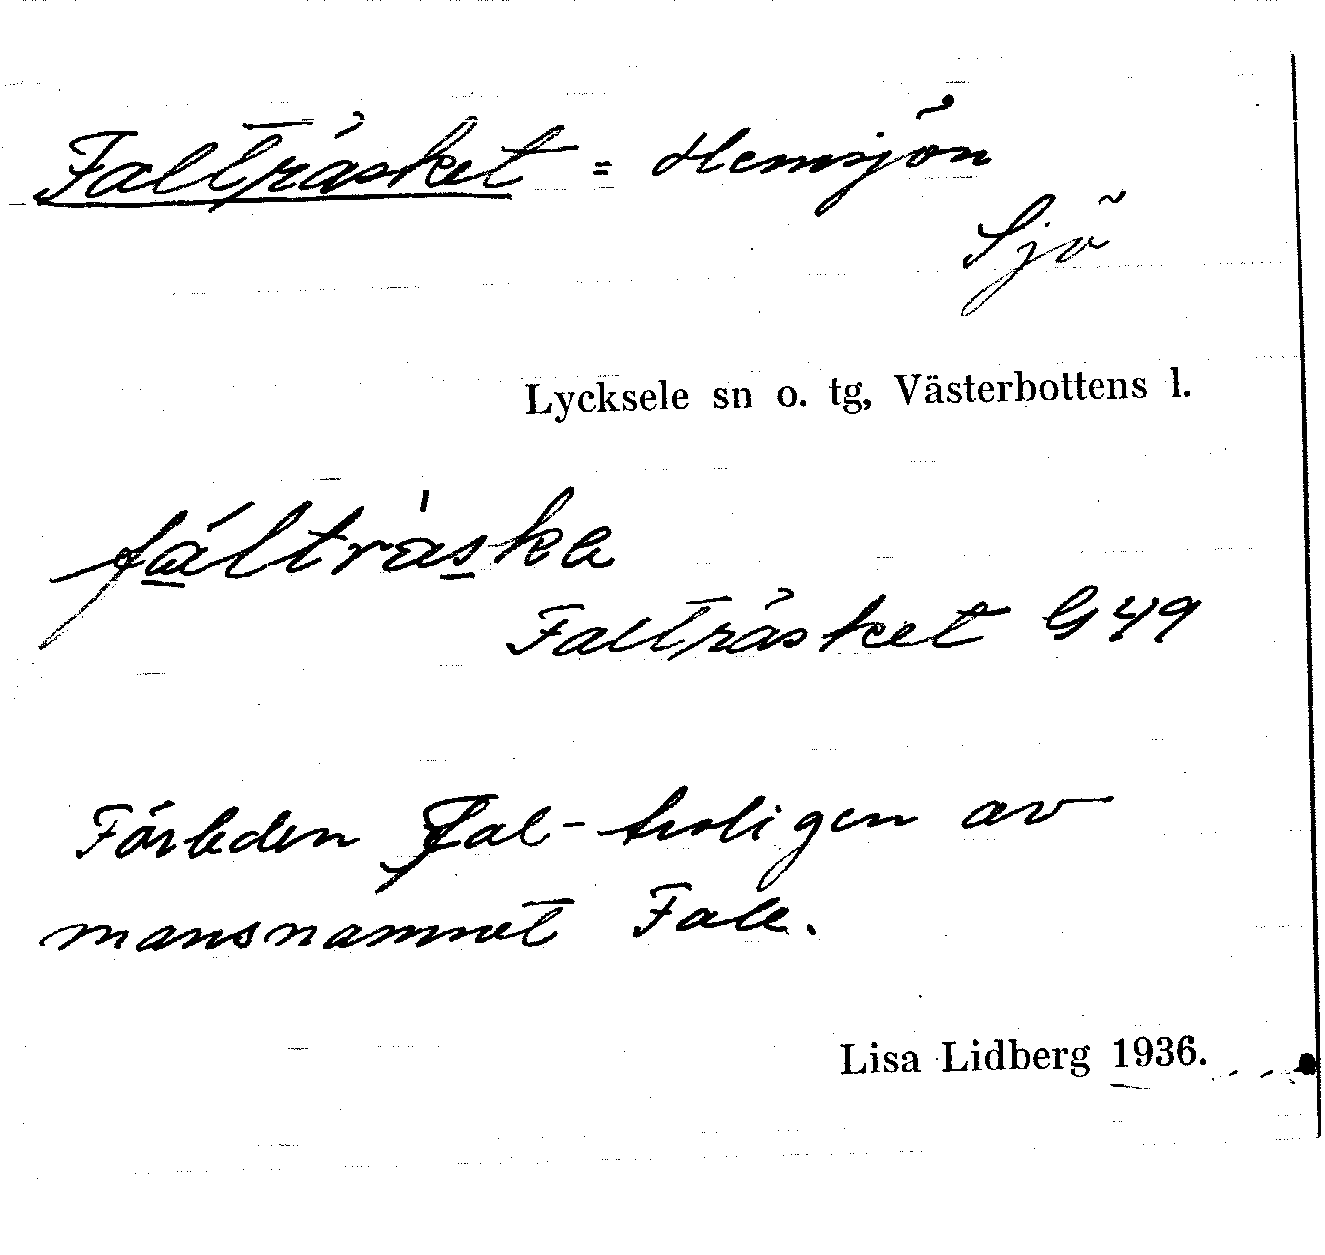 Falträsket = Hemsjön
Sjö
Lycksele sn o. tg, Västerbottens l.
fál̀träska
Falträsket G 49
Förleden Fal- troligen av
mansnamnet Fale.
Lisa Lidberg 1936.